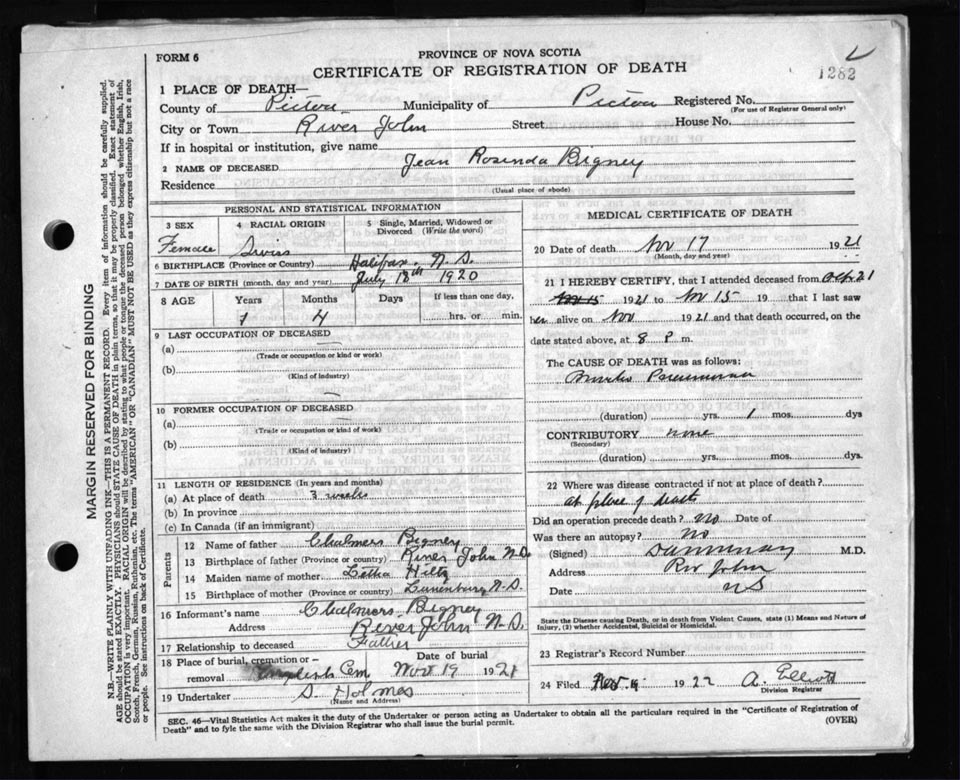 FORM 6
PROVINCE OF NOVA SCOTIA
CERTIFICATE OF REGISTRATION OF DEATH
1282
1 PLACE OF DEATH—
County of Pictou Municipality of Pictou Registered No.
(For use of Registrar General only)
City or Town River John Street House No.
If in hospital or institution, give name
2 NAME OF DECEASED Jean Rosinda Bigney
Residence
(Usual place of abode)
PERSONAL AND STATISTICAL INFORMATION
3 SEX 4 RACIAL ORIGIN 5 Single, Married, Widowed or Divorced (Write the word)
Female Swiss
6 BIRTHPLACE (Province or Country) Halifax. N.S.
7 DATE OF BIRTH (month, day and year) July 18th 1920
8 AGE Years Months Days If less than one day,
1 4 hrs. or min.
9 LAST OCCUPATION OF DECEASED
(a)
(Trade or occupation or kind or work)
(b)
(Kind of industry)
10 FORMER OCCUPATION OF DECEASED
(a)
(Trade or occupation or kind of work)
(b)
(Kind of industry)
11 LENGTH OF RESIDENCE (In years and months)
(a) At place of death 3 weeks
(b) In province
(c) In Canada (if an immigrant)
Parents
12 Name of father Chalmers Bigney
13 Birthplace of father (Province or country) River John N.S.
14 Maiden name of mother Letha Hiltz
15 Birthplace of mother (Province or country) Lunenburg N.S.
16 Informant's name Chalmers Bigney
Address River John N-S.
17 Relationship to deceased Father
18 Place of burial, cremation or— Date of burial
removal Cem. Nov 19 1921
19 Undertaker S. Holmes
(Name and Address)
MEDICAL CERTIFICATE OF DEATH
20 Date of death Nov 17 1921
(Month, day and year)
21 I HEREBY CERTIFY, that I attended deceased from Oct 21
Nov 15 1921 to Nov 15 19 that I last saw
her alive on Nov 1921 and that death occurred, on the
date stated above, at 8 P m.
The CAUSE OF DEATH was as follows:
(duration) yrs. 1 mos. dys
CONTRIBUTORY none
(Secondary)
(duration) yrs. mos. dys
22 Where was disease contracted if not at place of death?
at place of death
Did an operation precede death? no Date of
Was there an autopsy? no
(Signed) M.D.
Address Riv John
Date NS
State the Disease causing Death, or in death from Violent Causes, state (1) Means and Nature of Injury, (2) whether Accidental, Suicidal or Homicidal.
23 Registrar's Record Number
24 Filed 1922 A. Elliott
Division Registrar
SEC. 46—Vital Statistics Act makes it the duty of the Undertaker or person acting as Undertaker to obtain all the particulars required in the "Certificate of Registration of
Death" and to fyle the same with the Division Registrar who shall issue the burial permit.
(OVER)
MARGIN RESERVED FOR BINDING
N.B.—WRITE PLAINLY WITH UNFADING INK—THIS IS A PERMANENT RECORD. Every item of information should be carefully supplied.
AGE should be stated EXACTLY. PHYSICIANS should STATE CAUSE OF DEATH in plain terms, so that it may be properly classified. Exact statement of
OCCUPATION is very important. RACIAL ORIGIN will be described by stating to what people or tongue the deceased person belonged whether English, Irish,
Scotch, French, German, Russian, Ruthenian, etc. The terms "AMERICAN" OR "CANADIAN" MUST NOT BE USED as they express citizenship but not a race
or people. See instructions on back of Certificate.